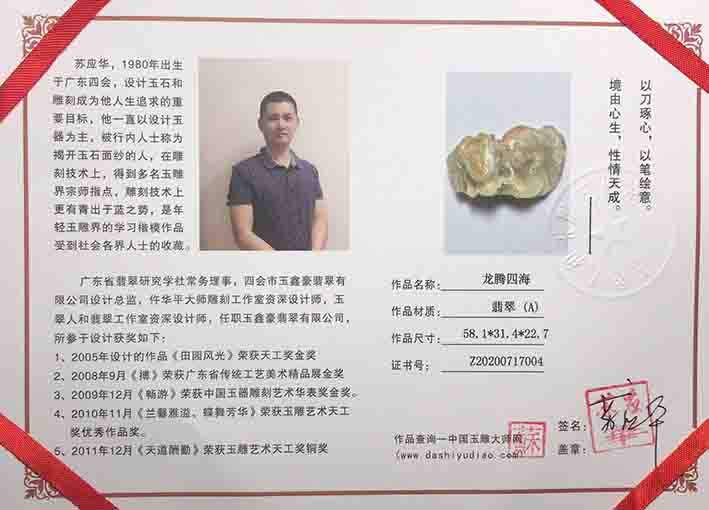 苏应华，1980年出生
于广东四会，设计玉石和
雕刻成为他人生追求的重
要目标，他一直以设计玉
器为主，被行内人士称为
揭开玉石面纱的人，在雕
刻技术上，得到多名玉雕
界宗师指点，雕刻技术上
更有青出于蓝之势，是年
轻玉雕界的学习楷模作品
受到社会各界人士的收藏。
广东省翡翠研究学社常务理事，四会市玉鑫豪翡翠有
限公司设计总监，仵华平大师雕刻工作室资深设计师，玉
翠人和翡翠工作室资深设计师，任职玉鑫豪翡翠有限公司，
所参于设计获奖如下：
1、2005年设计的作品《田园风光》荣获天工奖金奖
2、2008年9月《搏》荣获广东省传统工艺美术精品展金奖
3、2009年12月《畅游》荣获中国玉器雕刻艺术华表奖金奖。
4、2010年11月《兰馨雅溢、蝶舞芳华》荣获玉雕艺术天工
奖优秀作品奖。
5、2011年12月《天道酬勤》荣获玉雕艺术天工奖铜奖
以刀琢心，以笔绘意。
境由心生，性情天成。
作品名称：龙腾四海
作品材质：翡翠（A）
作品尺寸：58.1*31.4*22.7
证书号：Z20200717004
作品查询—中国玉雕大师网
(www.dashiyudiao.com)
签名：苏应华
盖章：